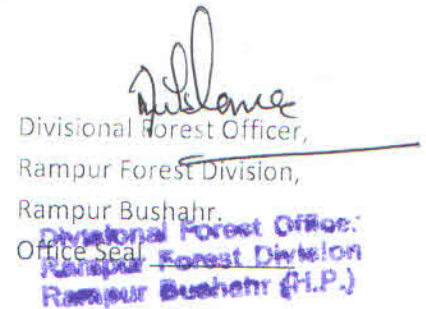 Divisional Forest Officer,
Rampur Forest Division,
Rampur Bushahr.
Office Seal
Divisional Forest Office:
Rampur Forest Division
Rampur Bushahr (H.P.)